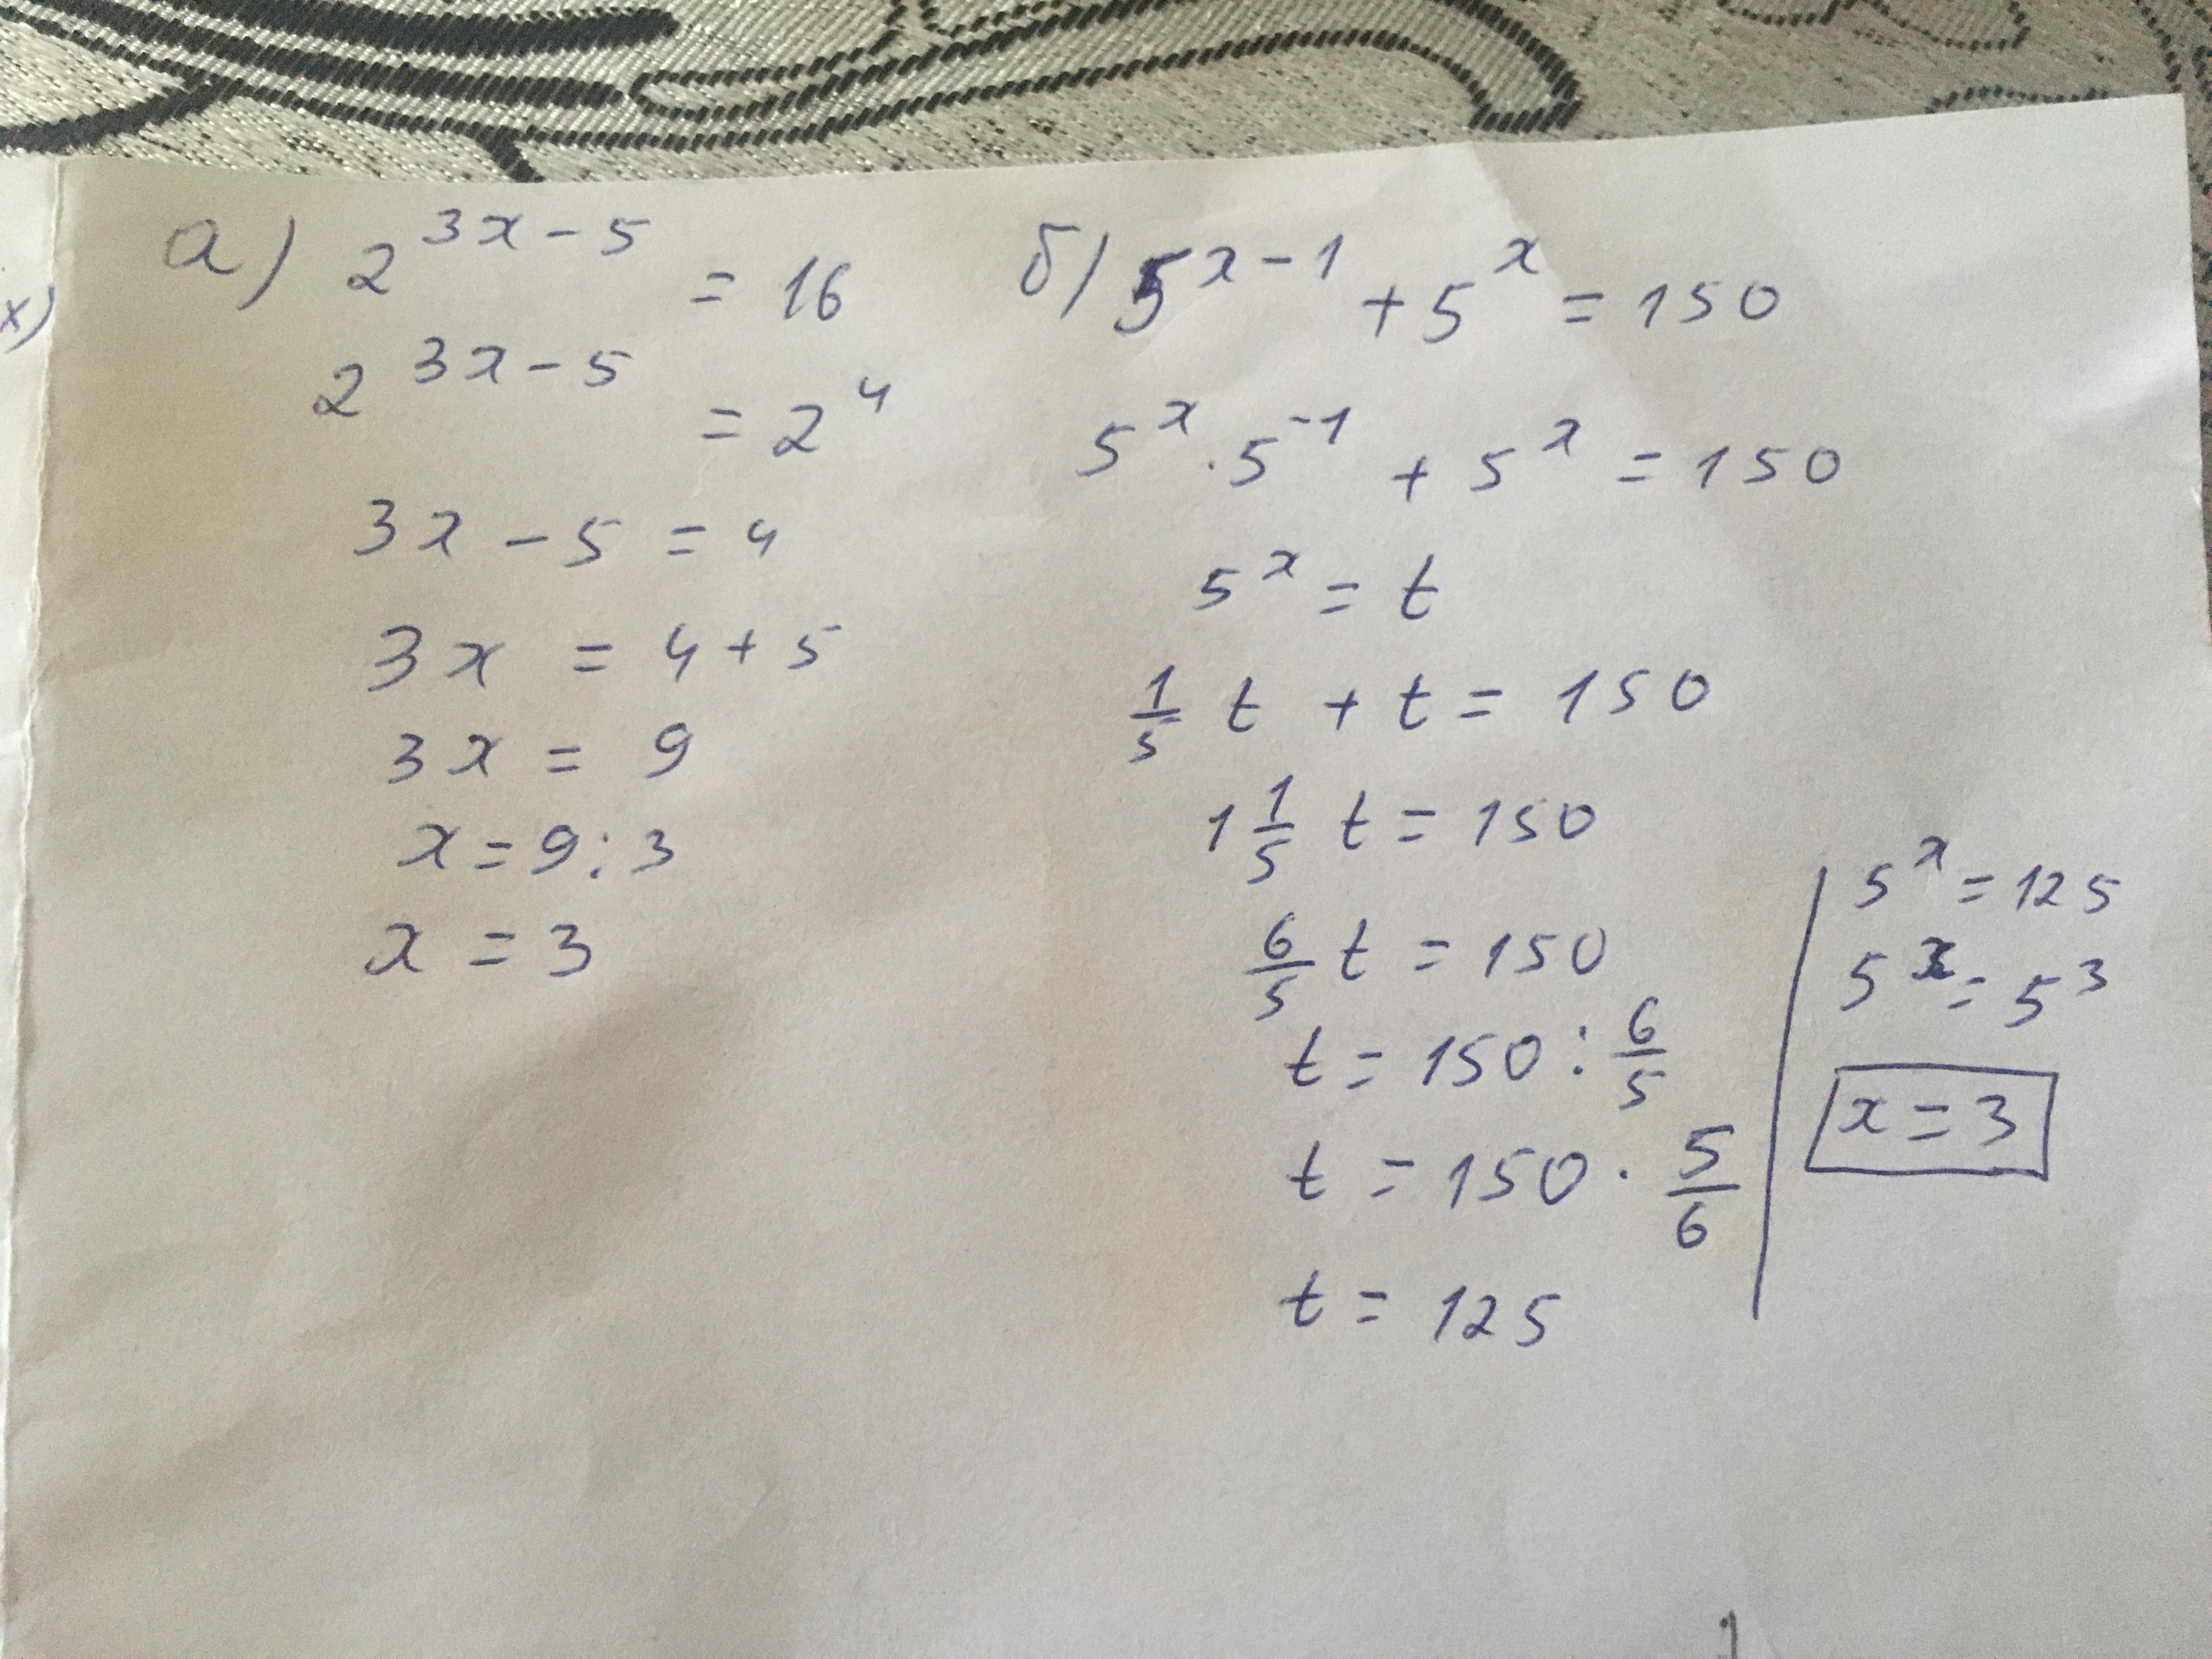 х)
а) 2^(3x-5) = 16
2^(3x-5) = 2^4
3x - 5 = 4
3x = 4 + 5
3x = 9
x = 9 : 3
x = 3
б) 5^(x-1) + 5^x = 150
5^x · 5^(-1) + 5^x = 150
5^x = t
1/5 t + t = 150
1 1/5 t = 150
6/5 t = 150
t = 150 : 6/5
t = 150 · 5/6
t = 125
5^x = 125
5^x = 5^3
x = 3